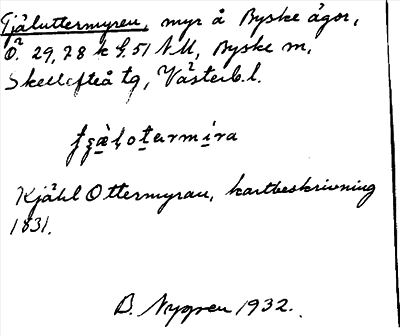 Tjäluttermyren, myr å Byske ägor,
Ö. 29, 78 k f. 51 NM, Byske sn,
Skellefteå tg, Västerb. l.
Kjähl Ottermyran, kartbeskrivning
1831.
B. Nygren 1932.